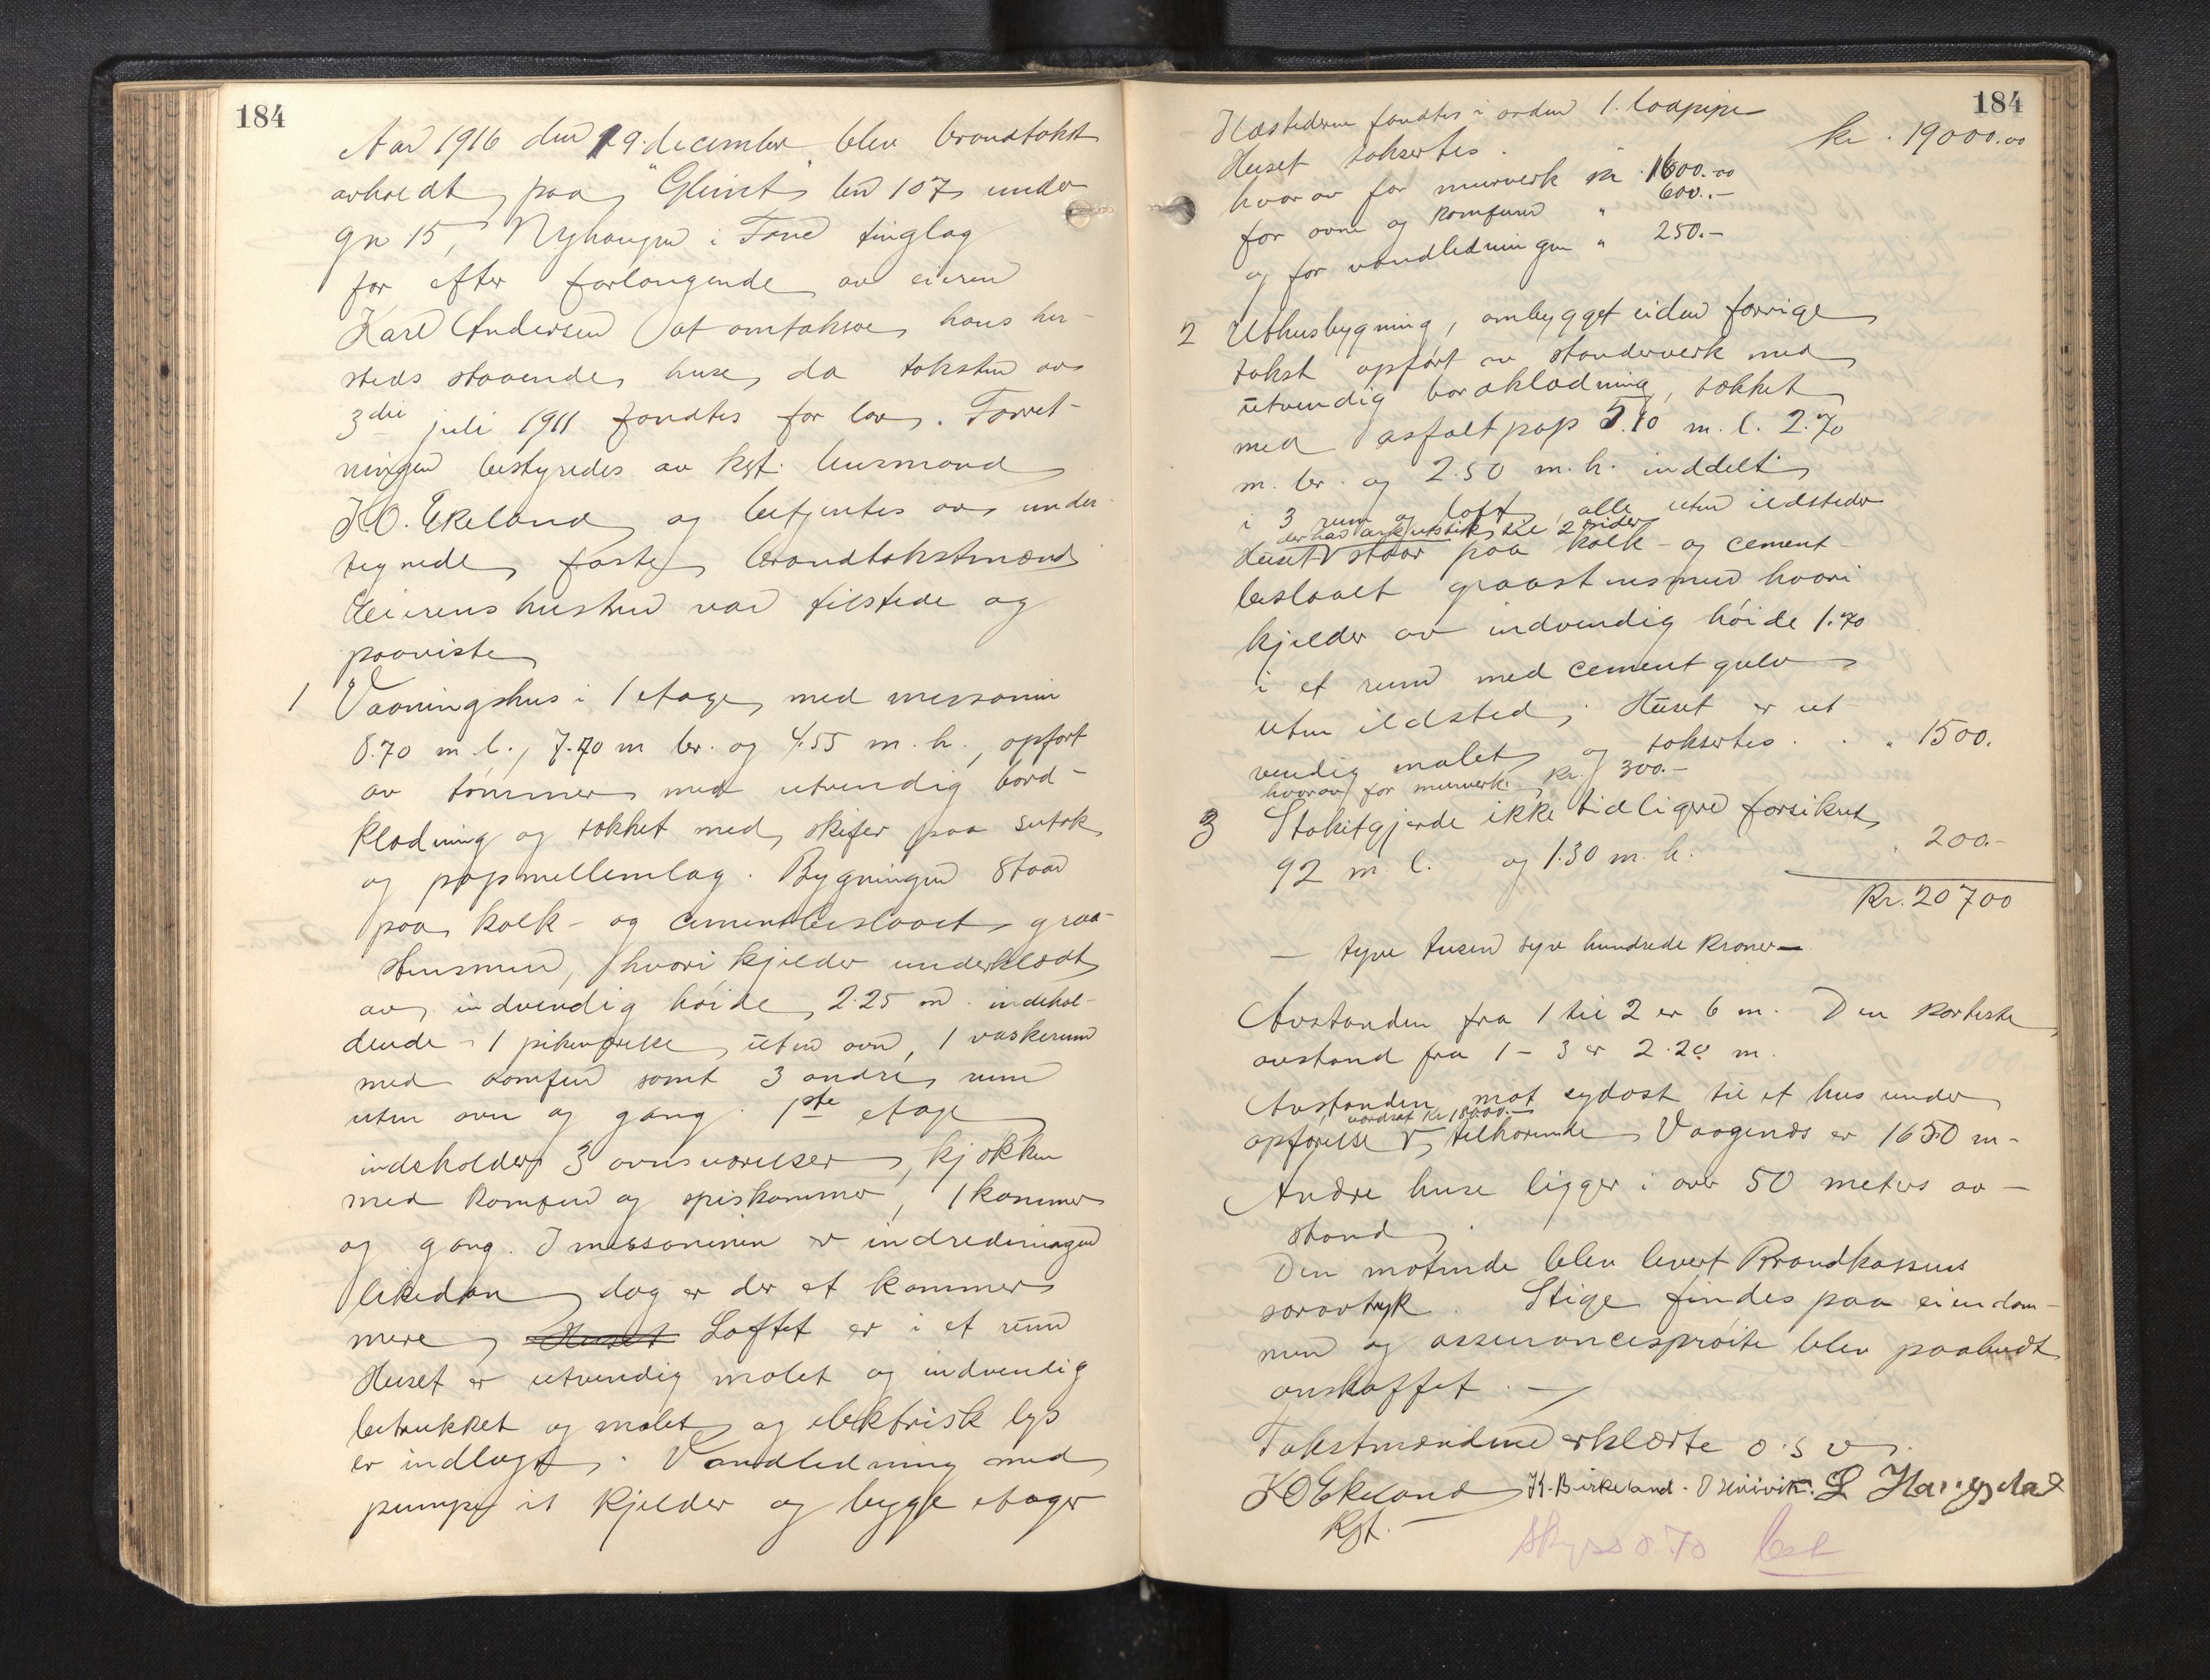 184
Aar 1916 den 19. december blev brandtakst
avholdt paa "Glimt" bn 107 under
gn 15, Nyhaugen i Fane tinglag
for efter forlangende av eieren
Karl Andersen at omtaksere hans her-
steds staaende huse, da taksten av
3die juli 1911 fandtes for lav. Forret-
ningen bestyredes av kst. lensmand
K.O. Ekeland og betjentes av under-
tegnede faste brandtakstmænd
Eierens hustru var tilstede og
paaviste
1 Vaaningshus i 1 etage med messanin
8.70 m l., 7.70 m br. og 4.55 m. h., opført
av tømmer med utvendig bord-
klædning og tækket med skifer paa sutak
og papmellemlag. Bygningen staar
paa kalk- og cementbeslaaet graa-
stensmur, hvori kjelder underklædt
av indvendig høide 2.25 m. indehol-
dende 1 pikeværelse uten ovn, 1 vaskerum
med komfur samt 3 andre rum
uten ovn og gang. 1ste etage
indeholder 3 ovnsværelser, kjøkken
med komfur og spiskammer, 1 kammer
og gang. I messaninen er indredningen
likedan, dog er der et kammer
mere, Huset Loftet er i et rum
Huset er utvendig malet og indvendig
betrukket og malet, og elektrisk lys
er indlagt. Vandledning med
pumpe i kjelder og begge etager
184
Ildstederne fandtes i orden 1. løapipe
Huset taksertes. kr. 19000.00
hvorav for murverk kr 1600.00
for ovne og komfurer " 600.-
og for vandledningen " 250.-
2 Uthusbygning, ombygget siden forrige
takst opført av standerverk med
utvendig bordklædning, tækket
med asfaltpap 5.10 m. l. 2.70
m. br. og 2.50 m. h. inddelt
i 3 rum og loft, alle uten ildsteder
der har arkutstik til 2 sider
Huset V staar paa kalk- og cement-
beslaaet graastensmur hvori
kjelder av indvendig høide 1.70
i et rum med cementgulv
uten ildsted; Huset er ut-
vendig malet og taksertes . . " 1500.
hvorav for murverk kr. 300.-
3 Stakitgjerde ikke tidligere forsikret,
92 m. l. og 1.30 m. h. " 200.-
Kr. 20700
- tyve tusen syv hundrede kroner-
Avstanden fra 1 til 2 er 6 m. Den korteste
avstand fra 1 - 3 er 2.20 m.
Avstanden mot sydost til et hus under
værdsat kr 10000.-
opførelse V, tilhørende Vaagenes er 16.50 m-
Andre huse ligger i over 50 meters av-
stand
Den møtende blev levert Brandkassens
særavtryk. Stige findes paa eiendom-
men og assurancesprøite blev paabudt
anskaffet. -
Takstmændene erklærte o.s.v.
K O Ekeland K. Birkeland. L Haugsdal
Kst.
Skyss 0.70 bet